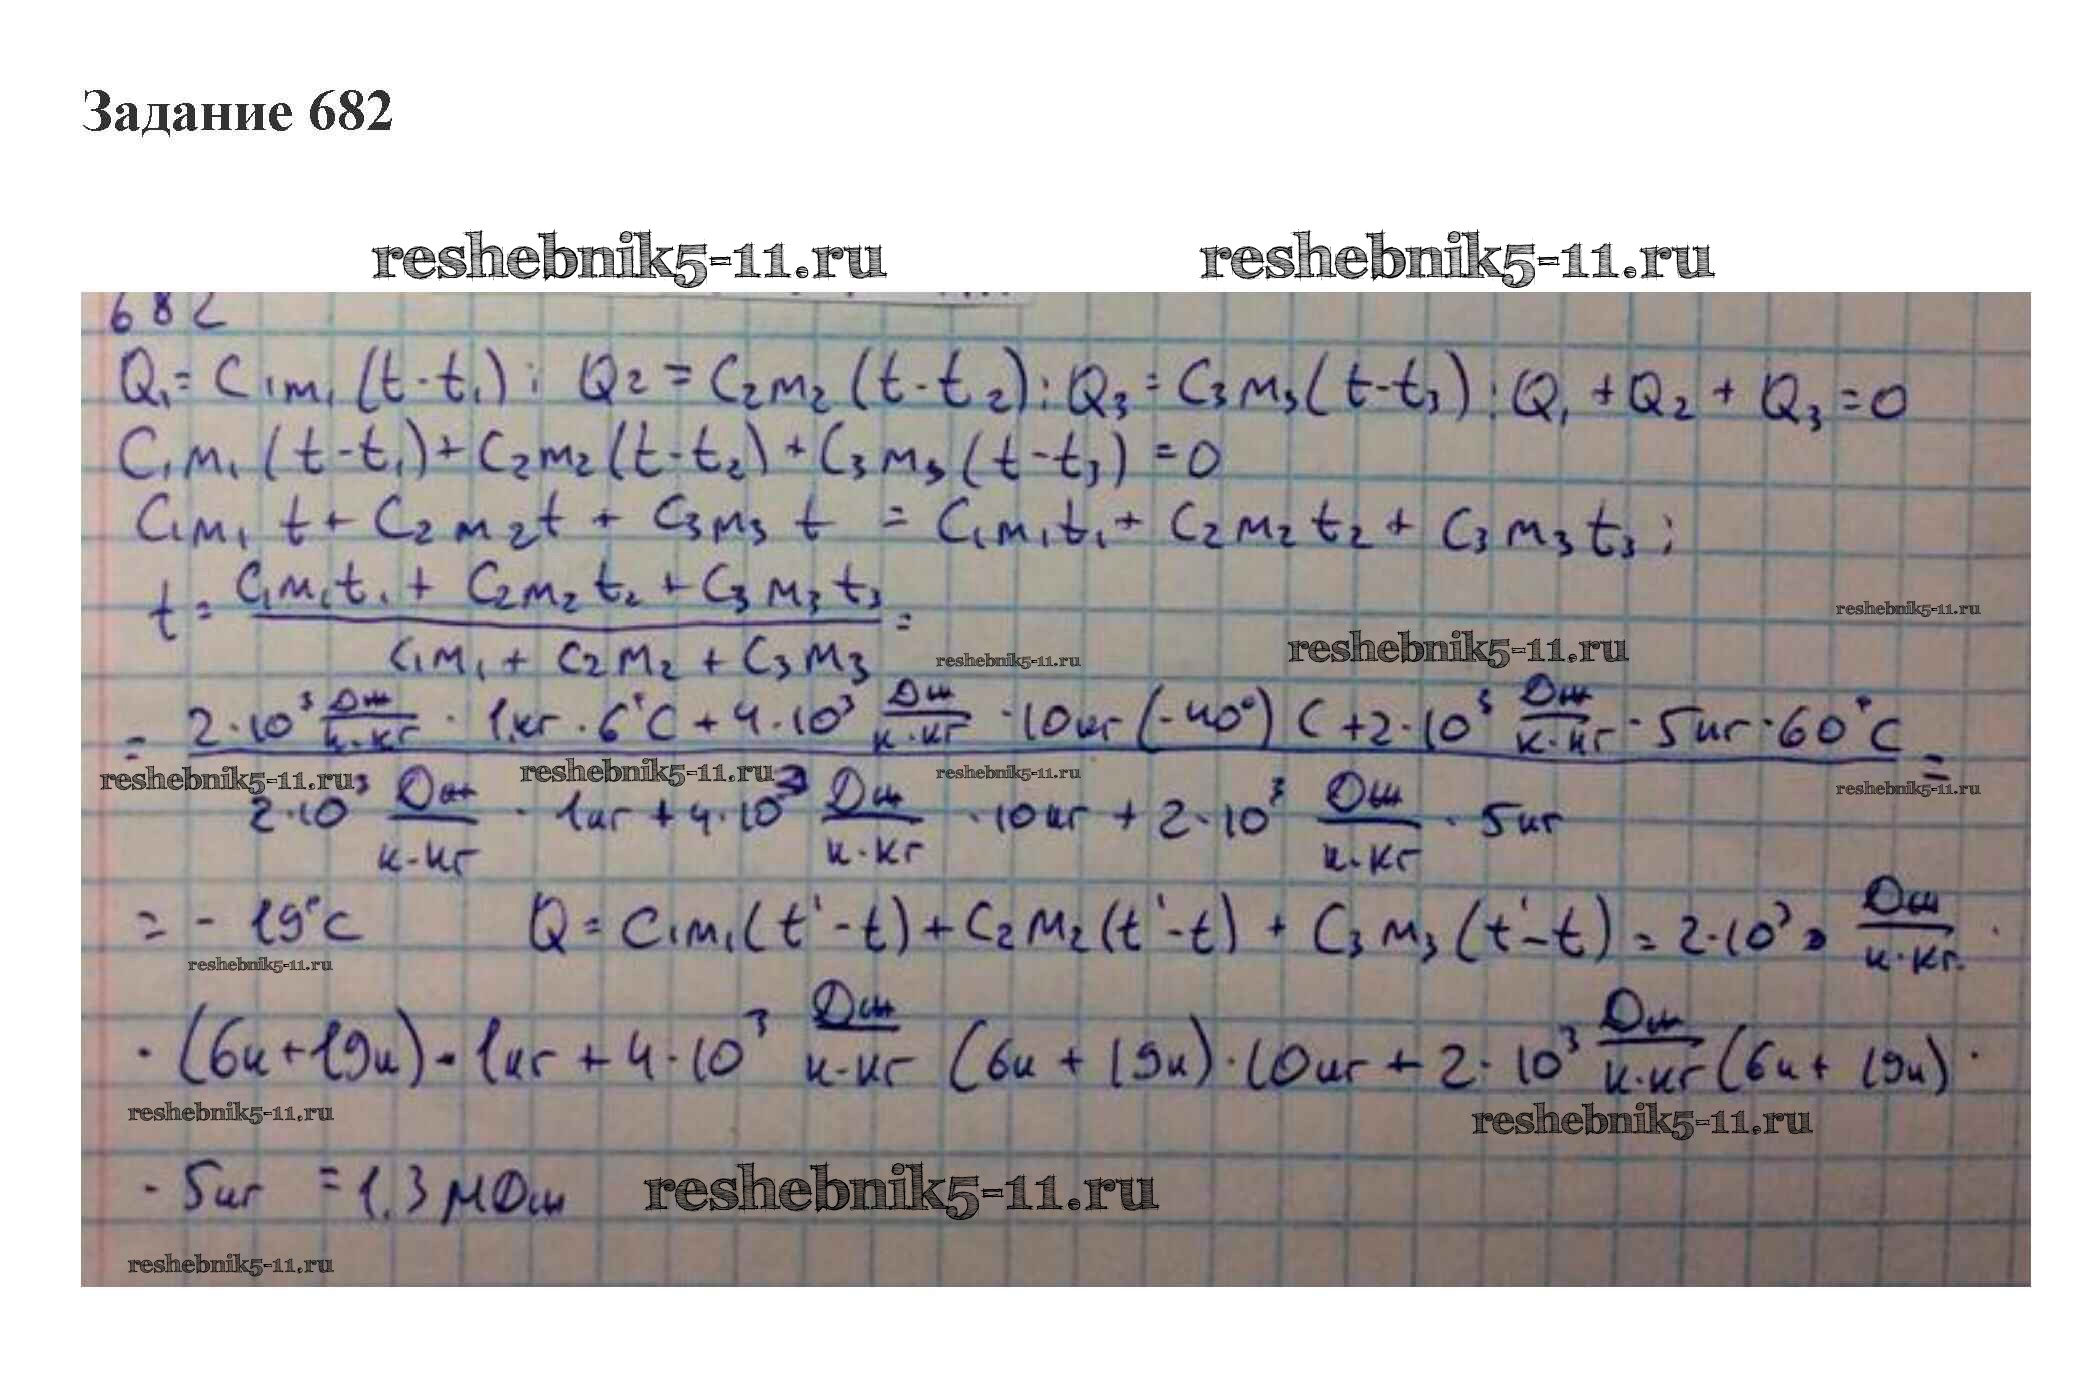 Задание 682
reshebnik5-11.ru reshebnik5-11.ru
682
Q₁ = C₁m₁(t-t₁); Q₂ = C₂m₂(t-t₂); Q₃ = C₃m₃(t-t₃); Q₁+Q₂+Q₃=0
C₁m₁(t-t₁)+C₂m₂(t-t₂)+C₃m₃(t-t₃)=0
C₁m₁t+C₂m₂t+C₃m₃t = C₁m₁t₁+C₂m₂t₂+C₃m₃t₃;
t = (C₁m₁t₁+C₂m₂t₂+C₃m₃t₃)/(C₁m₁+C₂m₂+C₃m₃) =
reshebnik5-11.ru
reshebnik5-11.ru reshebnik5-11.ru
= (2·10³ Дж/к·кг · 1кг · 6°C + 4·10³ Дж/к·кг · 10кг (-40°)C + 2·10³ Дж/к·кг · 5кг · 60°C)/(2·10³ Дж/к·кг · 1кг + 4·10³ Дж/к·кг · 10кг + 2·10³ Дж/к·кг · 5кг) =
reshebnik5-11.ru reshebnik5-11.ru reshebnik5-11.ru reshebnik5-11.ru
= -19°C Q = C₁m₁(t'-t)+C₂m₂(t'-t)+C₃m₃(t'-t) = 2·10³ Дж/к·кг ·
reshebnik5-11.ru
· (6к+19к) · 1кг + 4·10³ Дж/к·кг (6к+19к) · 10кг + 2·10³ Дж/к·кг (6к+19к) ·
reshebnik5-11.ru reshebnik5-11.ru
· 5кг = 1,3 МДж reshebnik5-11.ru
reshebnik5-11.ru